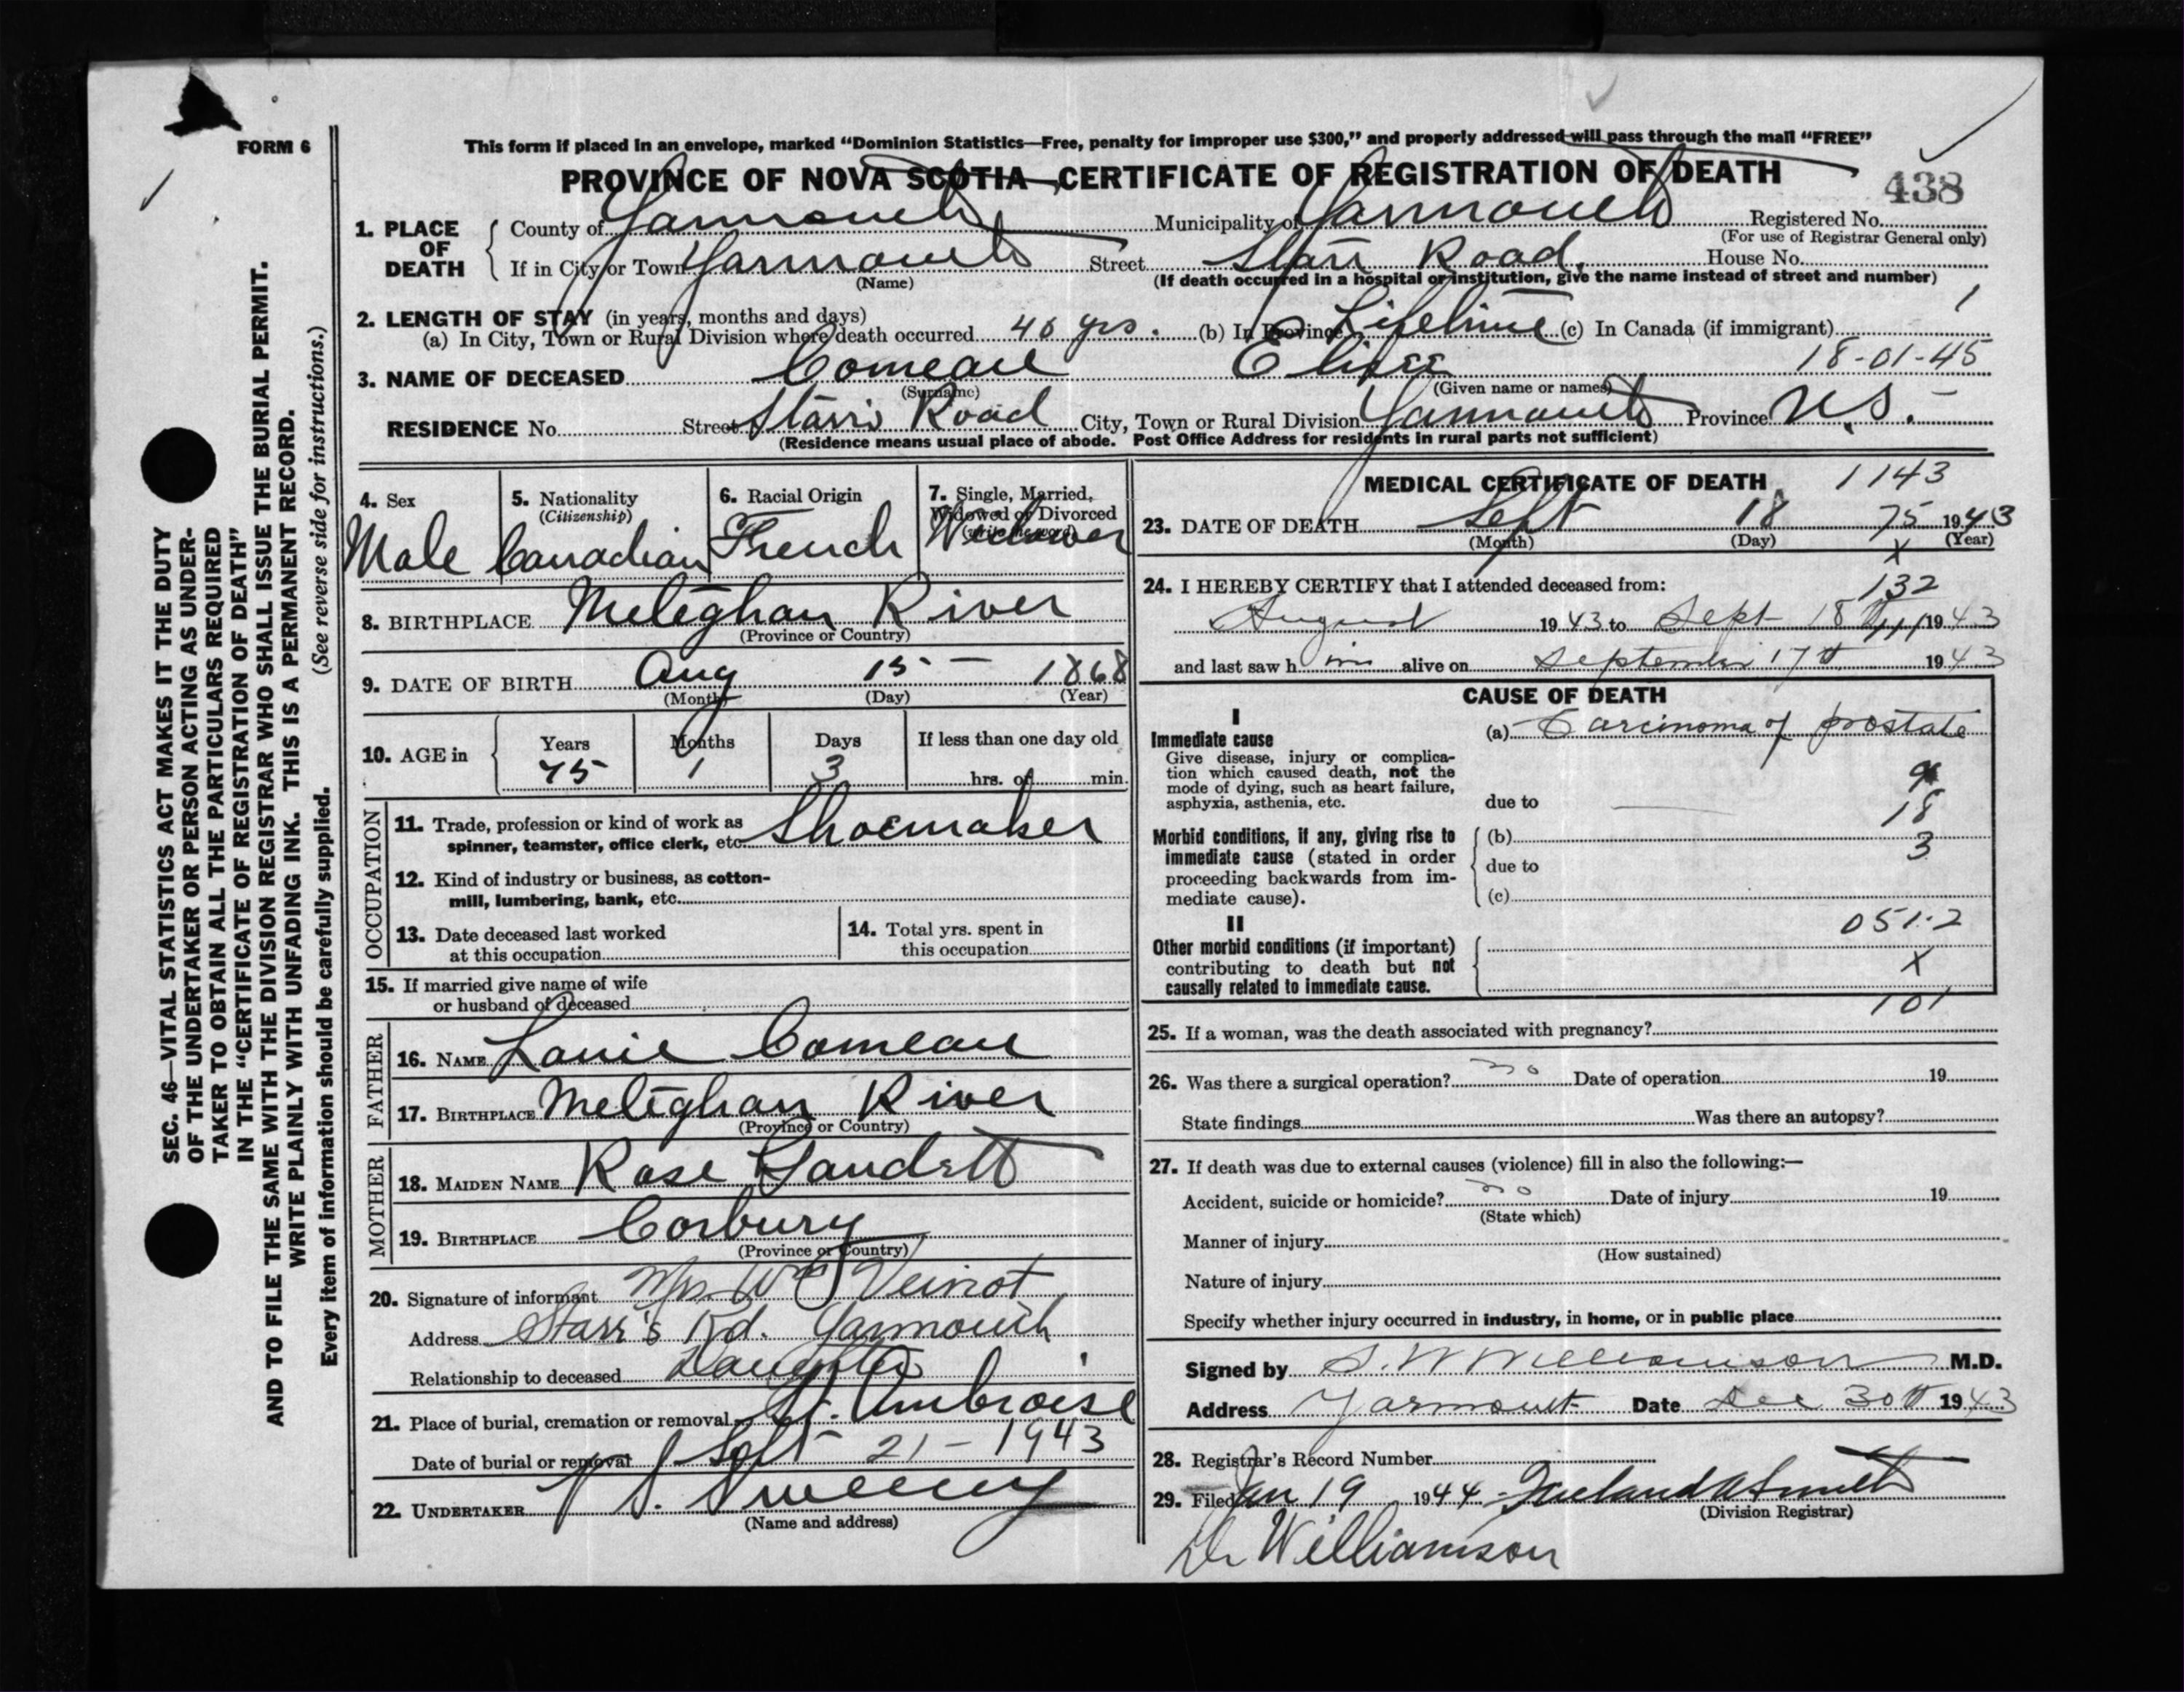 FORM 6
This form if placed in an envelope, marked "Dominion Statistics—Free, penalty for improper use $300," and properly addressed will pass through the mail "FREE"
PROVINCE OF NOVA SCOTIA—CERTIFICATE OF REGISTRATION OF DEATH
438
1. PLACE OF DEATH County of Yarmouth Municipality of Yarmouth Registered No.
(For use of Registrar General only)
If in City or Town Yarmouth Street Starr Road. House No.
(Name) (If death occurred in a hospital or institution, give the name instead of street and number)
2. LENGTH OF STAY (in years, months and days)
(a) In City, Town or Rural Division where death occurred 40 yrs. (b) In Province Lifetime (c) In Canada (if immigrant) 1
18-01-45
3. NAME OF DECEASED Comeau Elisee
(Surname) (Given name or names)
RESIDENCE No. Street Starrs Road City, Town or Rural Division Yarmouth Province N.S.
(Residence means usual place of abode. Post Office Address for residents in rural parts not sufficient)
4. Sex Male
5. Nationality (Citizenship) Canadian
6. Racial Origin French
7. Single, Married, Widowed or Divorced (write the word) Widower
8. BIRTHPLACE Meteghan River
(Province or Country)
9. DATE OF BIRTH Aug 15 — 1868
(Month) (Day) (Year)
10. AGE in Years Months Days If less than one day old
75 1 3 hrs. or min.
OCCUPATION
11. Trade, profession or kind of work as spinner, teamster, office clerk, etc. Shoemaker
12. Kind of industry or business, as cotton-mill, lumbering, bank, etc.
13. Date deceased last worked at this occupation
14. Total yrs. spent in this occupation
15. If married give name of wife or husband of deceased
FATHER
16. NAME Louie Comeau
17. BIRTHPLACE Meteghan River
(Province or Country)
MOTHER
18. MAIDEN NAME Rose Gaudett
19. BIRTHPLACE Corbury
(Province or Country)
20. Signature of informant Mrs. W C Veinot
Address Starr's Rd. Yarmouth
Relationship to deceased Daughter
21. Place of burial, cremation or removal St. Ambroise
Date of burial or removal Sept 21 – 1943
22. UNDERTAKER V S. Sweeny
(Name and address)
MEDICAL CERTIFICATE OF DEATH 1143
23. DATE OF DEATH Sept 18 75 1943
(Month) (Day) (Year)
X
24. I HEREBY CERTIFY that I attended deceased from: 132
August 1943 to Sept 18th 1943
and last saw him alive on September 17th 1943
CAUSE OF DEATH
I
Immediate cause
Give disease, injury or complication which caused death, not the mode of dying, such as heart failure, asphyxia, asthenia, etc.
(a) Carcinoma of prostate
due to
18
Morbid conditions, if any, giving rise to immediate cause (stated in order proceeding backwards from immediate cause).
(b)
3
due to
(c)
II
051.2
Other morbid conditions (if important) contributing to death but not causally related to immediate cause.
X
101
25. If a woman, was the death associated with pregnancy?
26. Was there a surgical operation? no Date of operation 19
State findings Was there an autopsy?
27. If death was due to external causes (violence) fill in also the following:—
Accident, suicide or homicide? no Date of injury 19
(State which)
Manner of injury
(How sustained)
Nature of injury
Specify whether injury occurred in industry, in home, or in public place
Signed by S. W Williamson M.D.
Address Yarmouth Date Dec 30th 1943
28. Registrar's Record Number
29. Filed Jan 19 1944
(Division Registrar)
Dr Williamson
SEC. 46—VITAL STATISTICS ACT MAKES IT THE DUTY
OF THE UNDERTAKER OR PERSON ACTING AS UNDER-
TAKER TO OBTAIN ALL THE PARTICULARS REQUIRED
IN THE "CERTIFICATE OF REGISTRATION OF DEATH"
AND TO FILE THE SAME WITH THE DIVISION REGISTRAR WHO SHALL ISSUE THE BURIAL PERMIT.
WRITE PLAINLY WITH UNFADING INK. THIS IS A PERMANENT RECORD.
Every item of information should be carefully supplied. (See reverse side for instructions.)